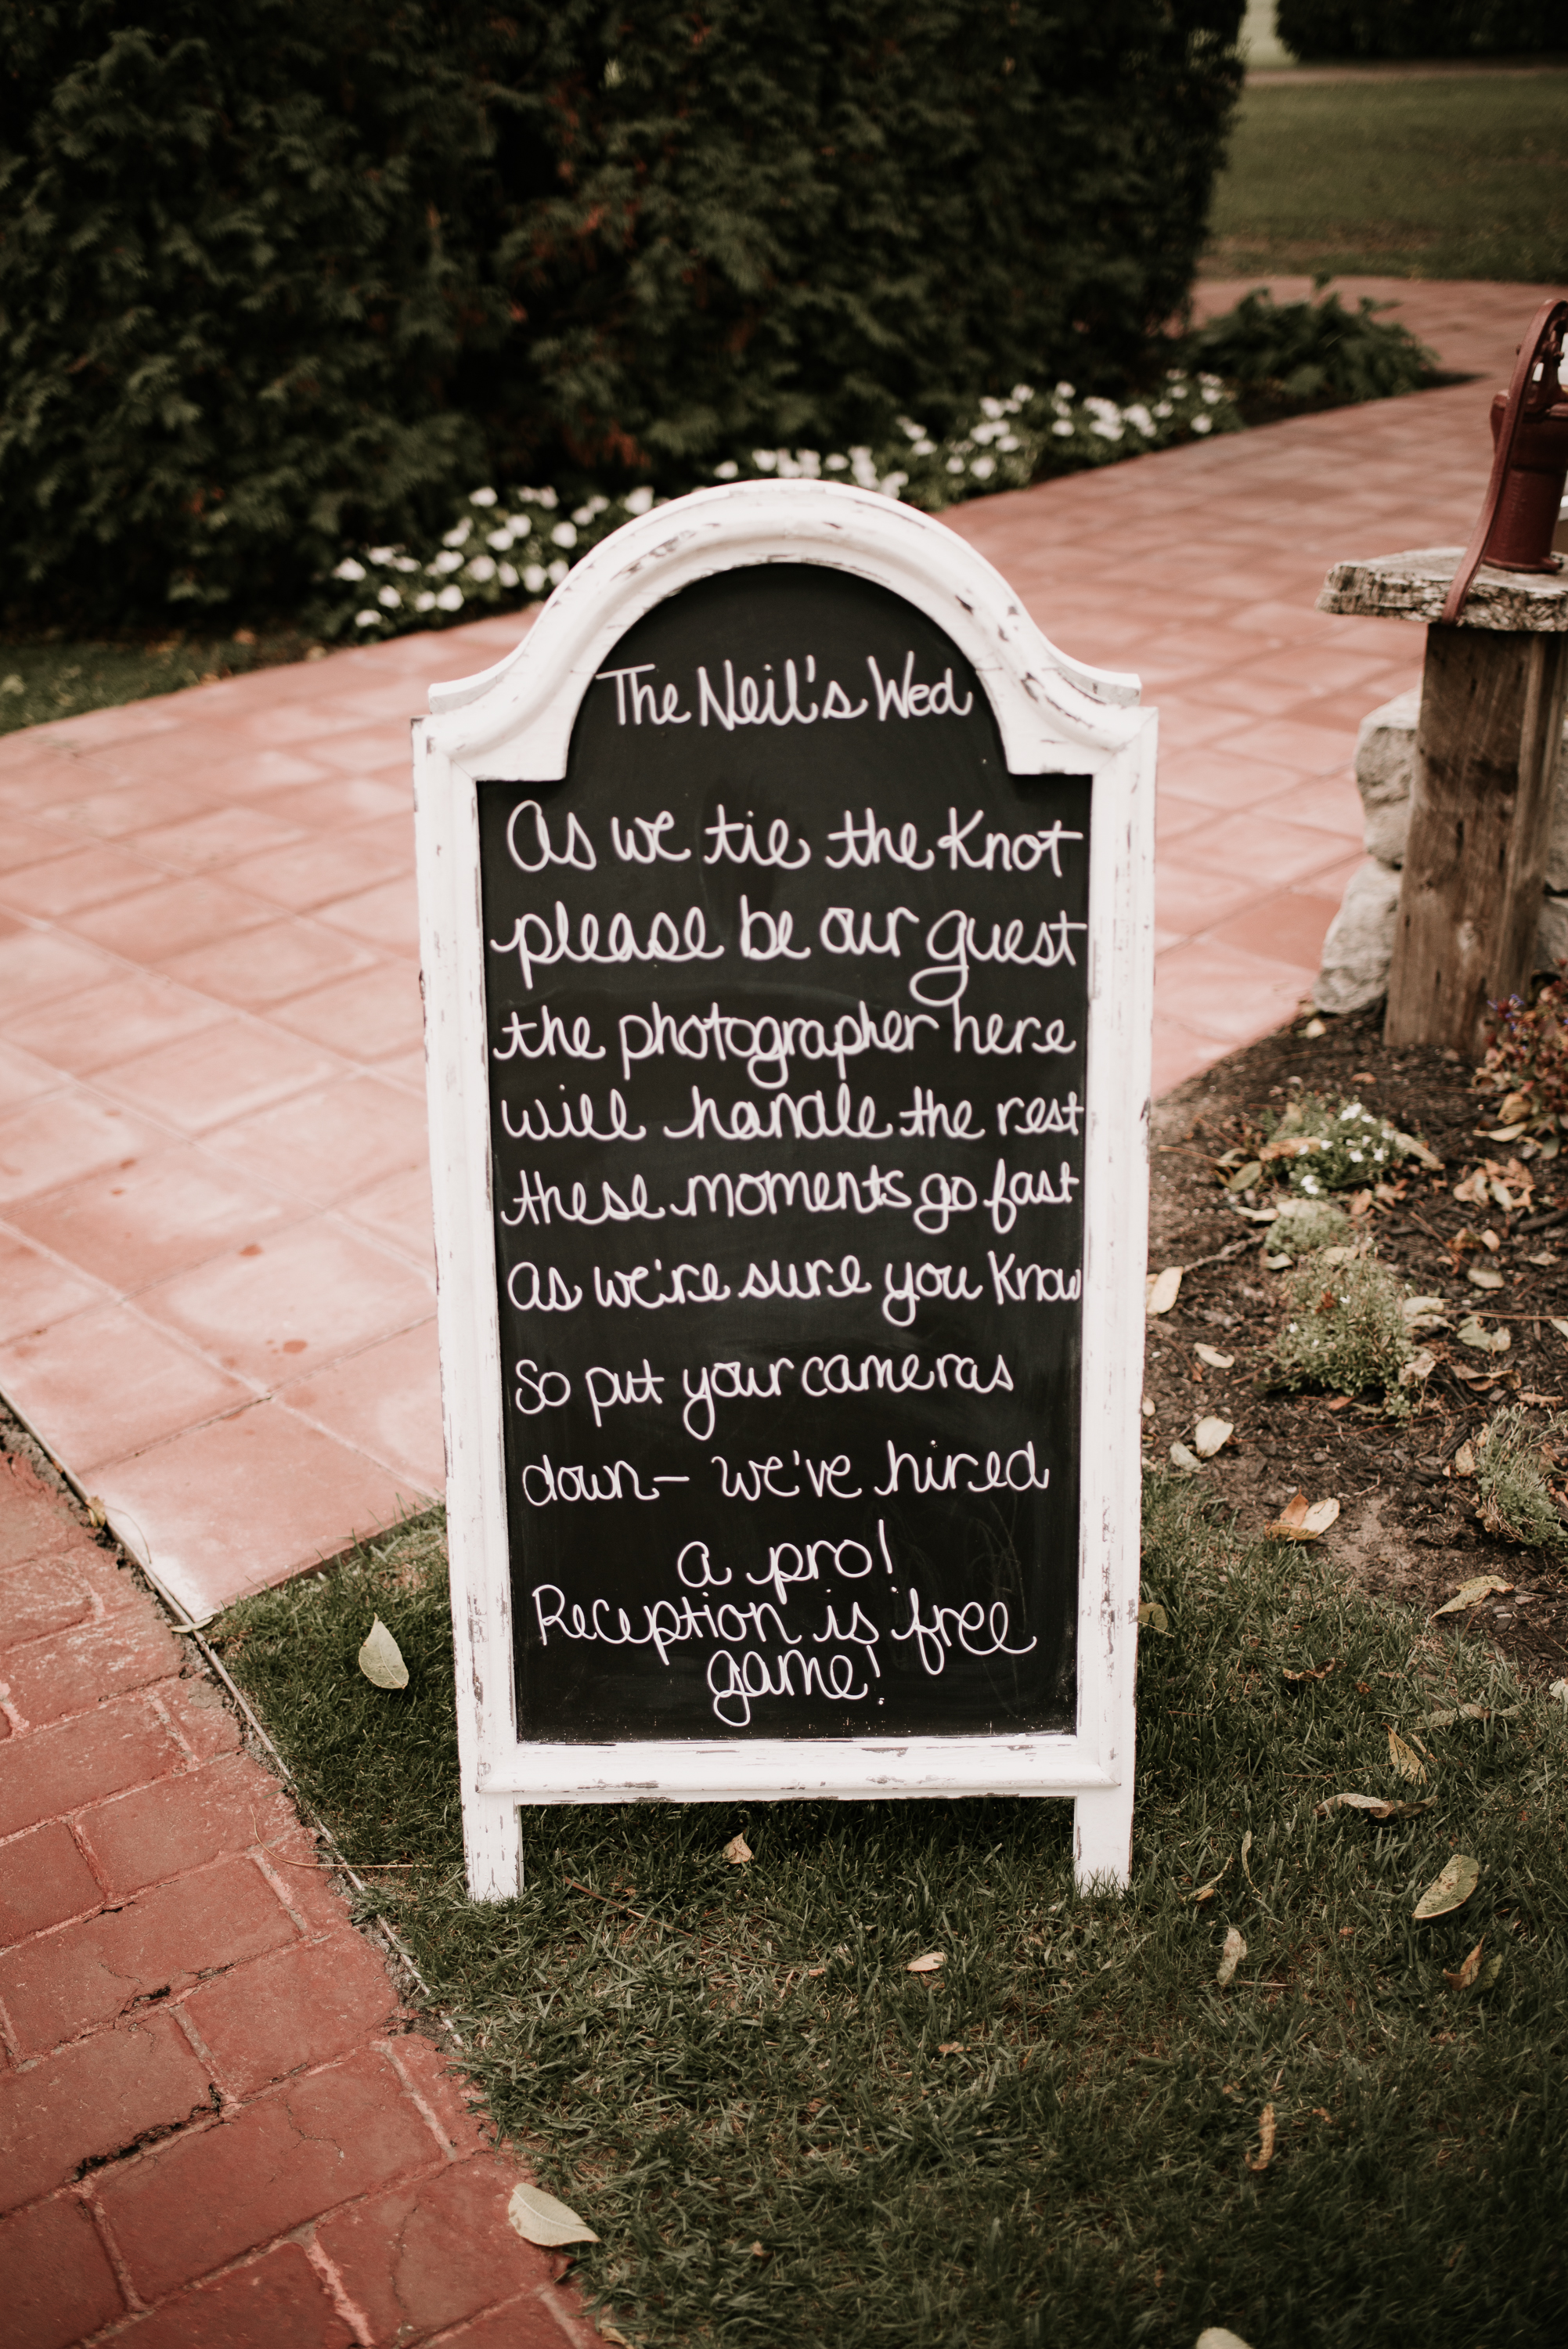 The Neil's Wed
As we tie the Knot
please be our guest
the photographer here
will handle the rest
these moments go fast
as we're sure you know
So put your cameras
down- we've hired
a pro!
Reception is free
game!